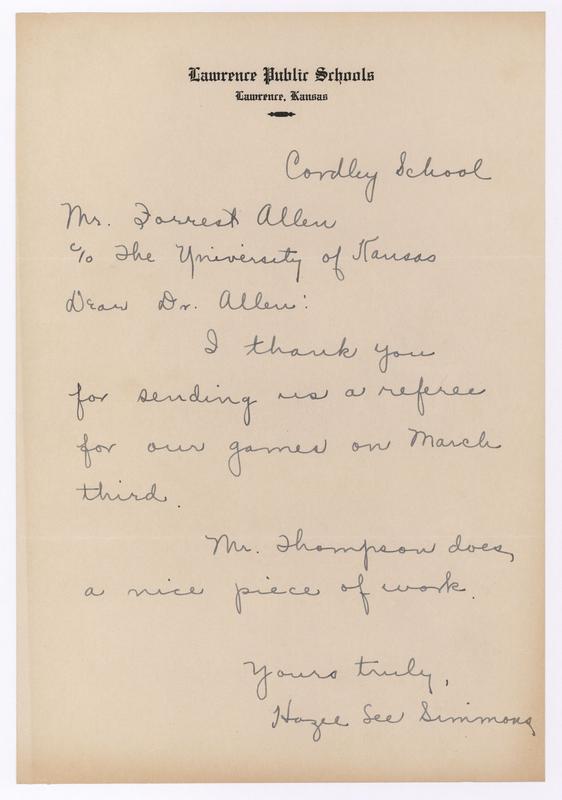 Lawrence Public Schools
Lawrence, Kansas
Cordley School
Mr. Forrest Allen
c/o The University of Kansas
Dear Dr. Allen:
I thank you
for sending us a referee
for our games on March
third.
Mr. Thompson does
a nice piece of work.
Yours truly,
Hazel Lee Simmons